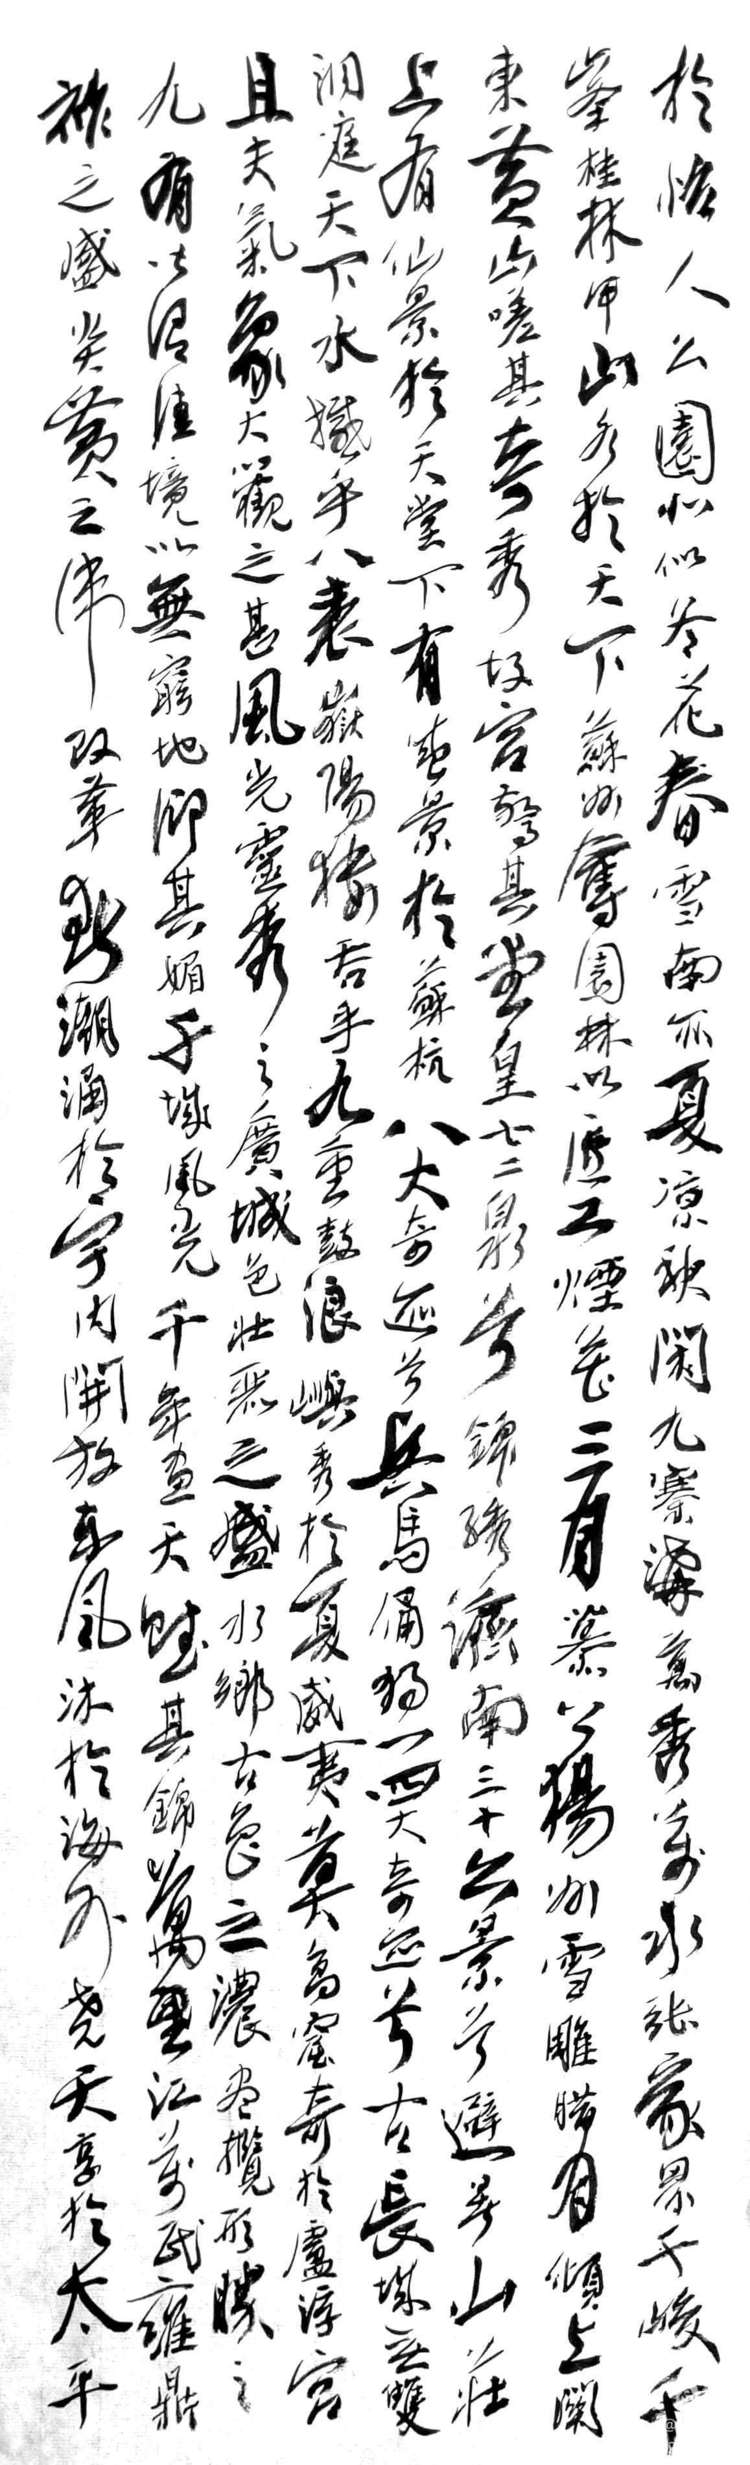 於怡人公園北似冬花春雪南亦夏凉秋閑九寨溝萬秀萬水張家界千峻千
峯桂林甲山水於天下蘇州奪園林以匠工煙花三月慕以揚州雪雕腊月傾之關
東黄山嗟其奇秀故宫驚其堂皇七十二泉兮錦琇濟南三十六景兮避暑山莊
上有仙景於天堂下有画景於蘇杭八大奇迹兮兵馬俑獨一四大奇迹兮古長城無雙
洞庭天下水撼乎八表嶽陽樓吞乎九重鼓浪嶼秀於夏威夷莫高窟奇於盧浮宫
且夫氣象大觀之甚風光靈秀之廣城邑壮麗之盛水鄉古色之濃盡攬形勝之
九有皆得佳境以無窮地仰其媚千城風光千年画天賦其錦萬里江萬民雍鼎
祚之盛炎黄之偉改革新潮涌於宇内開放東風沐於海外堯天享於太平